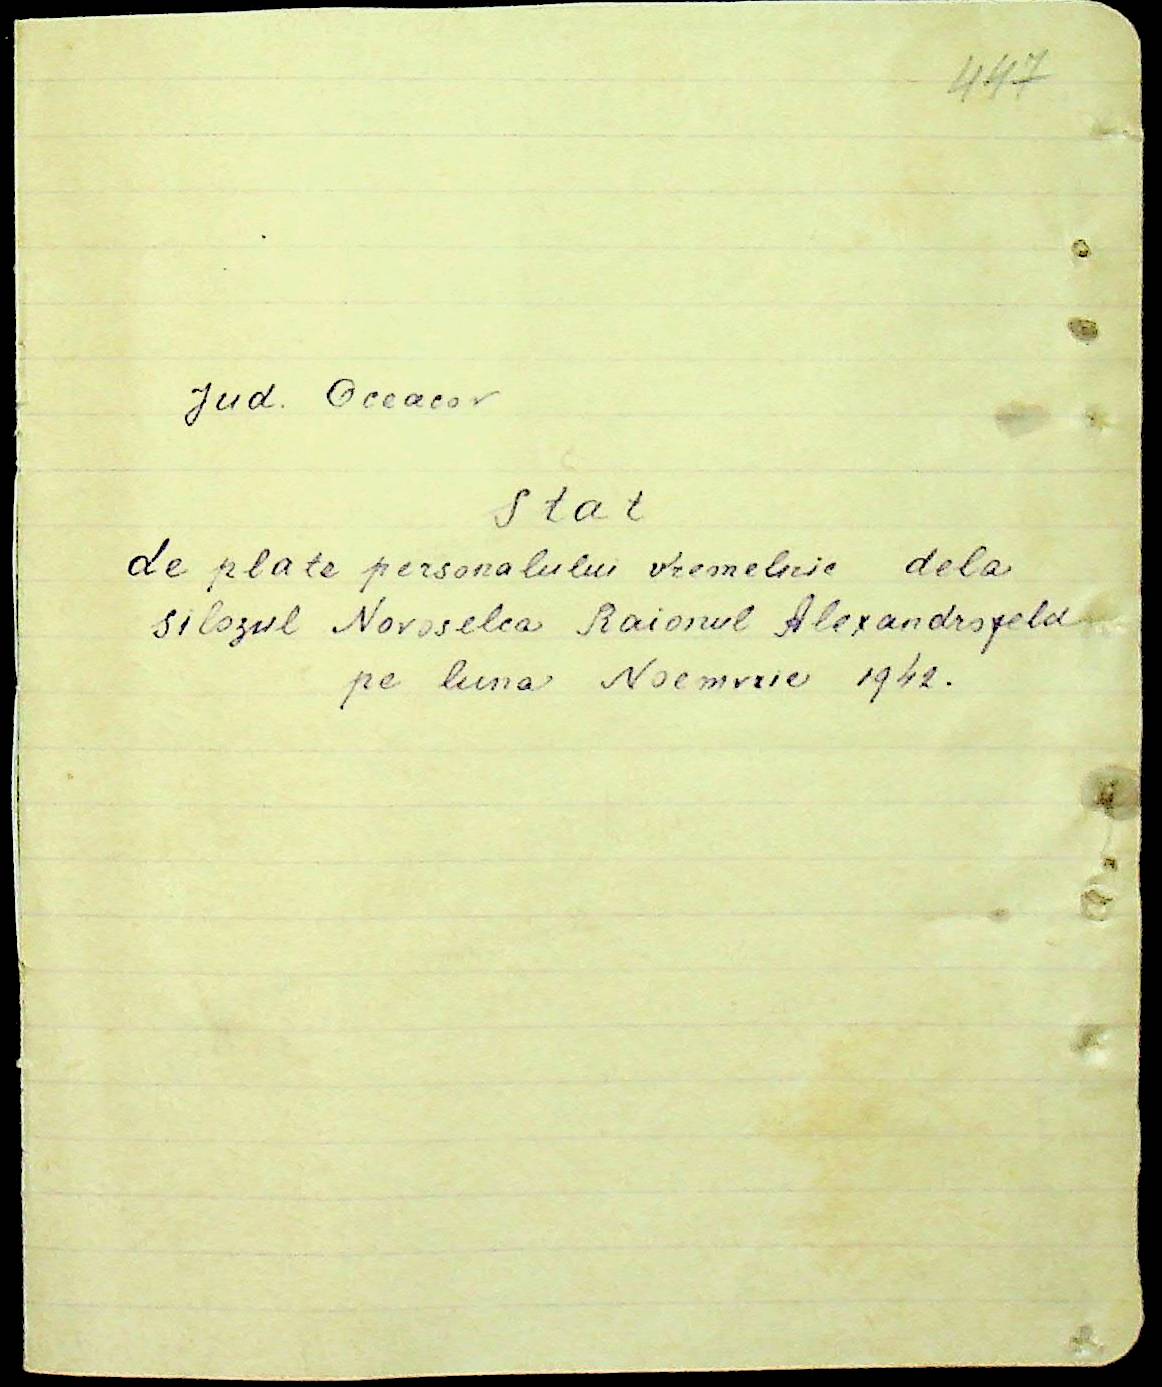 447
Jud. Oceacov
Stat
de plate personalului vremelnic dela
silozul Novoselca Raionul Alexandrofeld
pe luna Noemvrie 1942.